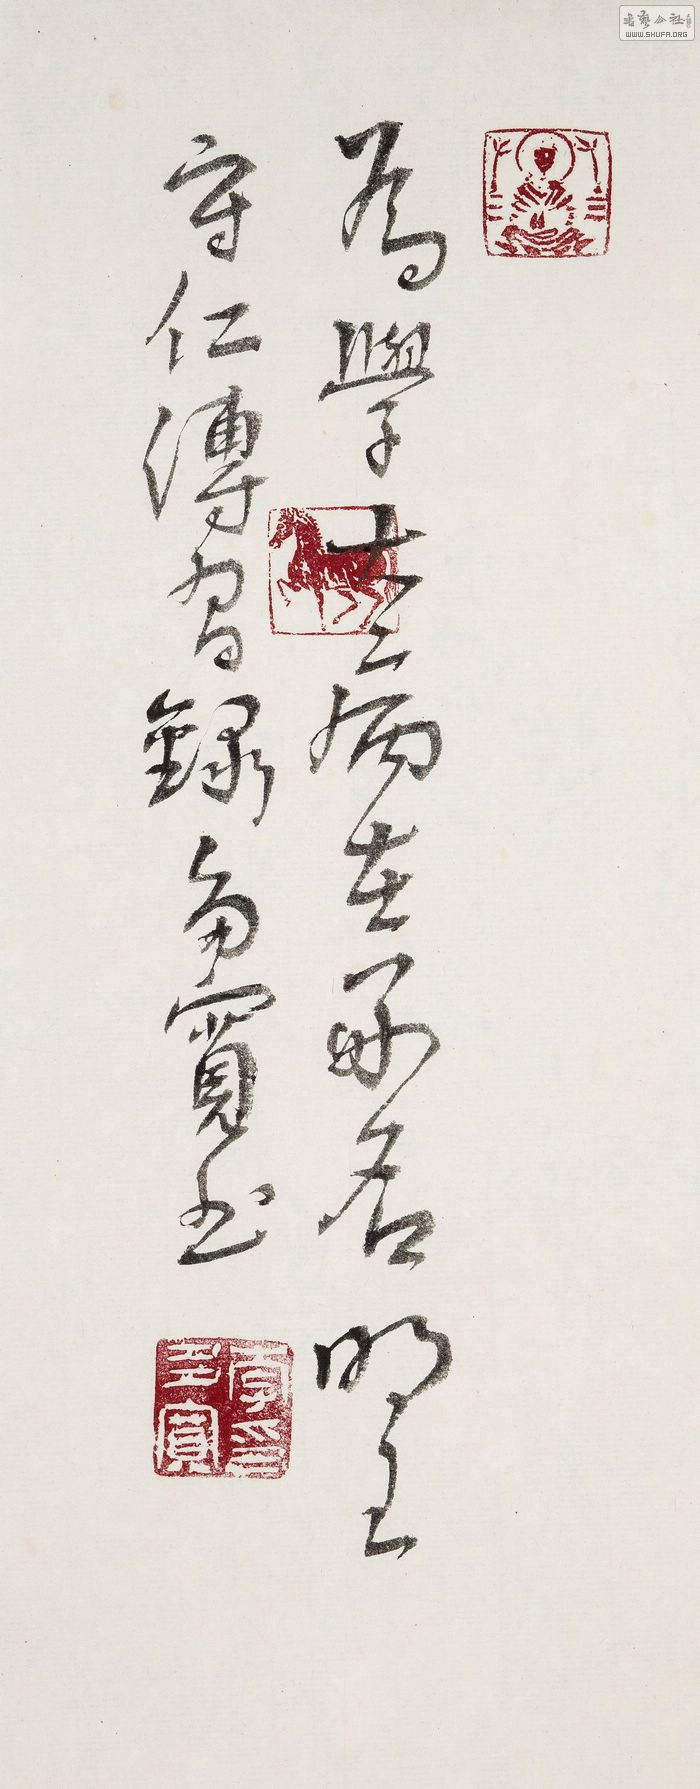 書藝公社
WWW.SHUFA.ORG
為學大病在好名 明王
守仁傳習錄 書